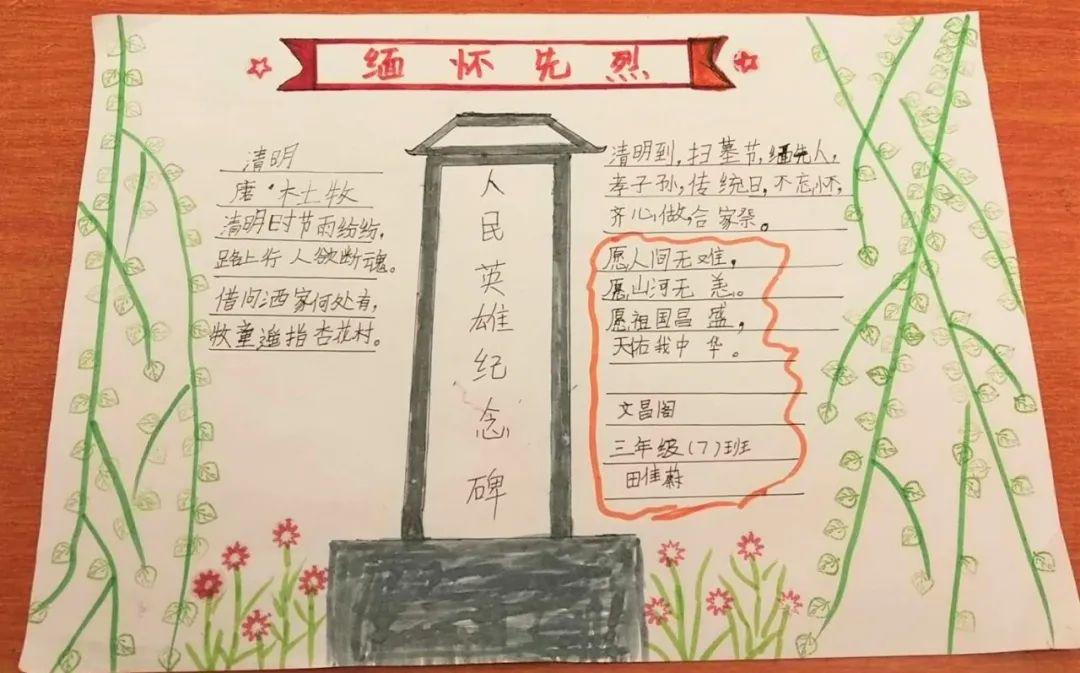 缅怀先烈
清明
唐·杜牧
清明时节雨纷纷,
路上行人欲断魂。
借问酒家何处有,
牧童遥指杏花村。
人民英雄纪念碑
清明到,扫墓节,缅先人,
孝子孙,传统日,不忘怀,
齐心做,合家祭。
愿人间无难,
愿山河无恙。
愿祖国昌盛,
天佑我中华。
文昌阁
三年级(7)班
田佳蔚